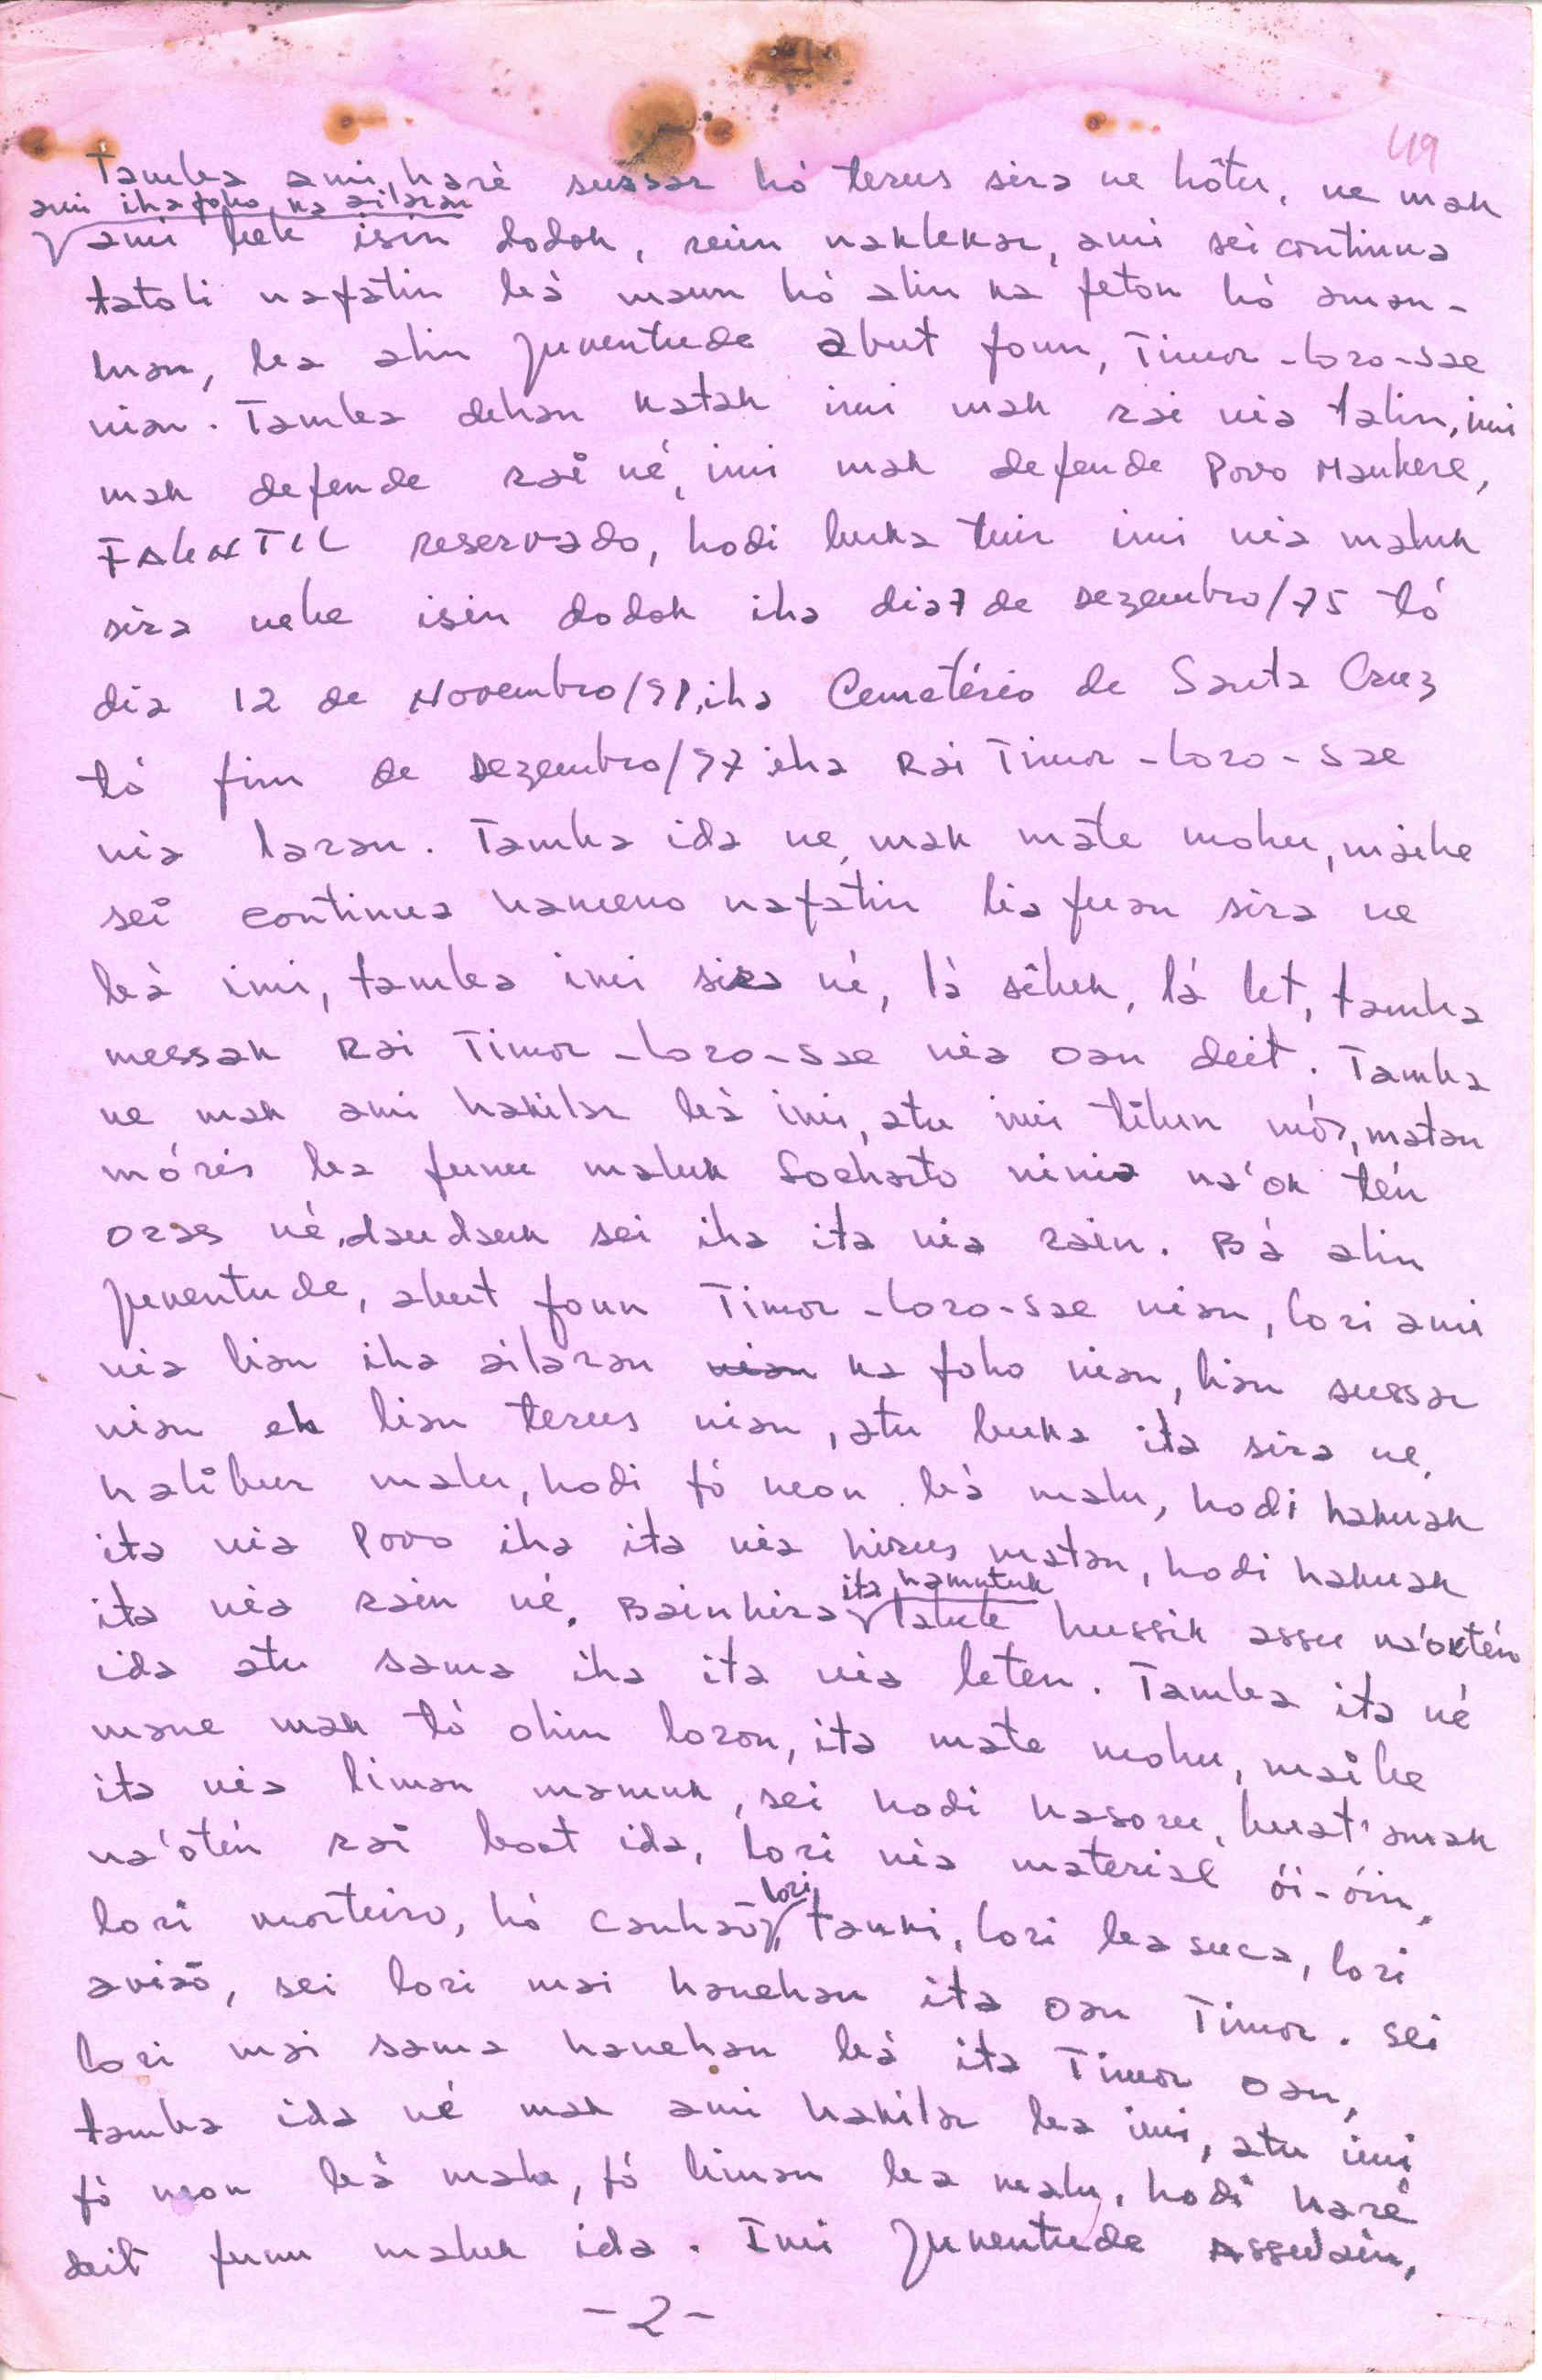 49
Tamba ami haré sussar hó terus sira ne hôtu, ne mak
ami iha foho, ka ailaran
ami bele isin dodok, ruin naklekar, ami sei continua
tatoli nafatin bá maun hó alin ka feton hó aman-
luan, ba alin juventude abut foun, Timor-Loro-Sae
nian. Tamba dehan katak imi mak rai nia talin, imi
mak defende rai né, imi mak defende Povo Maubere,
FALINTIL reservado, hodi buka tuir imi nia maluk
sira nebe isin dodok iha dia 7 de Dezembro/75 tó
dia 12 de Novembro/91, iha Cemetério de Santa Cruz
tó fim de Dezembro/97 iha Rai Timor-Loro-Sae
nia laran. Tamba ida ne, mak mate mohu, maibe
sei continua hameno nafatin lia fuan sira ne
bá imi, tamba imi sira né, lá sêluk, lá let, tamba
messak Rai Timor-Loro-Sae nia oan deit. Tamba
ne mak ami hakilar bá imi, atu imi tilun mós, matan
móris ba funu maluk Soeharto ninia na'ok tén
oras né, daudauk sei iha ita nia rain. Bá alin
juventude, abut foun Timor-Loro-Sae nian, lori ami
nia lian iha ailaran nian ka foho nian, lian sussar
nian ek lian terus nian, atu buka ita sira ne,
halibur malu, hodi fó neon bá malu, hodi hakuak
ita nia Povo iha ita nia hirus matan, hodi hakuak
ita hamutuk
ita nia rain né. Bainhira labele hussik assu na'oktén
ida atu sama iha ita nia leten. Tamba ita né
mane mak tó ohin loron, ita mate mohu, maibe
ita nia liman mamuk, sei hodi hasoru, buat'amak
na'otén rai boot ida, lori nia material ói-óin,
lori
lori morteiro, hó canhaõ, tanki, lori basuca, lori
aviaõ, sei lori mai hanehan ita oan Timor. Sei
lori mai sama hanehan bá ita Timor oan,
tamba ida né mak ami hakilar ba imi, atu imi
fó neon bá malu, fó liman ba malu, hodi haré
deit funu maluk ida. Imi juventude Assuwain,
-2-